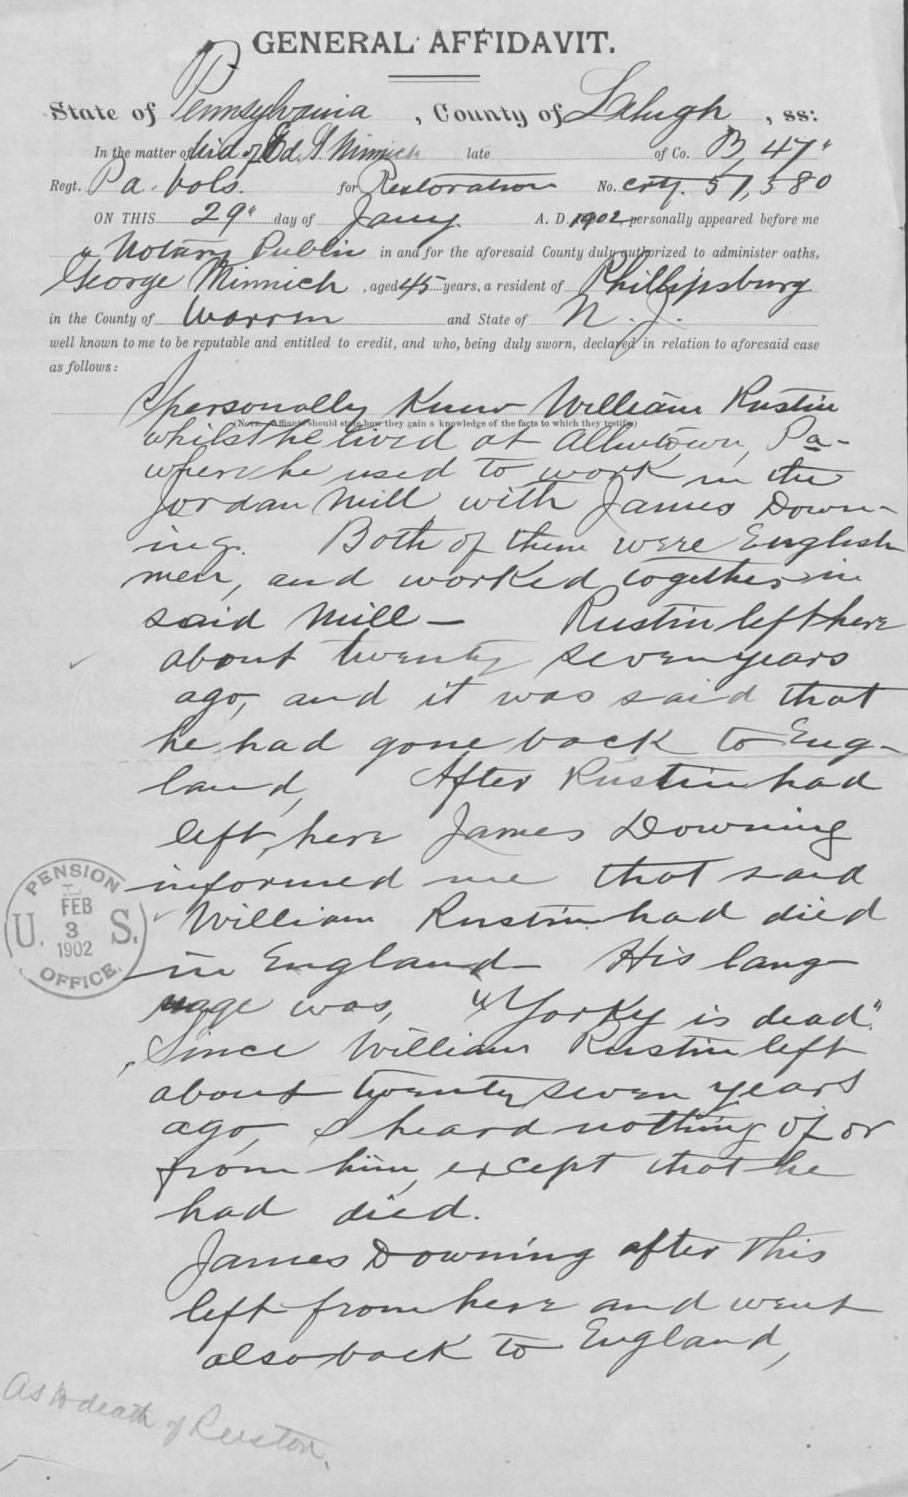 GENERAL AFFIDAVIT.
State of Pennsylvania, County of Lehigh, ss:
In the matter of Wid of Ed. G. Minnich late of Co. B, 47"
Regt. Pa. Vols. for Restoration No. ctf. 57,580
ON THIS 29" day of Jany. A. D. 1902, personally appeared before me
a Notary Public in and for the aforesaid County duly authorized to administer oaths,
George Minnich, aged 45 years, a resident of Phillipsburg
in the County of Warren and State of N. J.
well known to me to be reputable and entitled to credit, and who, being duly sworn, declared in relation to aforesaid case
as follows:
I personally knew William Rustin
(NOTE.—Affiants should state how they gain a knowledge of the facts to which they testify.)
whilst he lived at Allentown, Pa-
where he used to work in the
Jordan Mill with James Down-
ing. Both of them were English
men, and worked together in
said Mill — Rustin left here
about twenty seven years
ago, and it was said that
he had gone back to Eng-
land, After Rustin had
left, here James Downing
informed me that said
William Rustin had died
in England — His lang-
uage was, "Yorky is dead".
Since William Rustin left
about twenty seven years
ago, I heard nothing of or
from him, except that he
had died.
James Downing after this
left from here and went
also back to England,
PENSION
U. S.
FEB
3
1902
OFFICE.
As to death of Ruston.